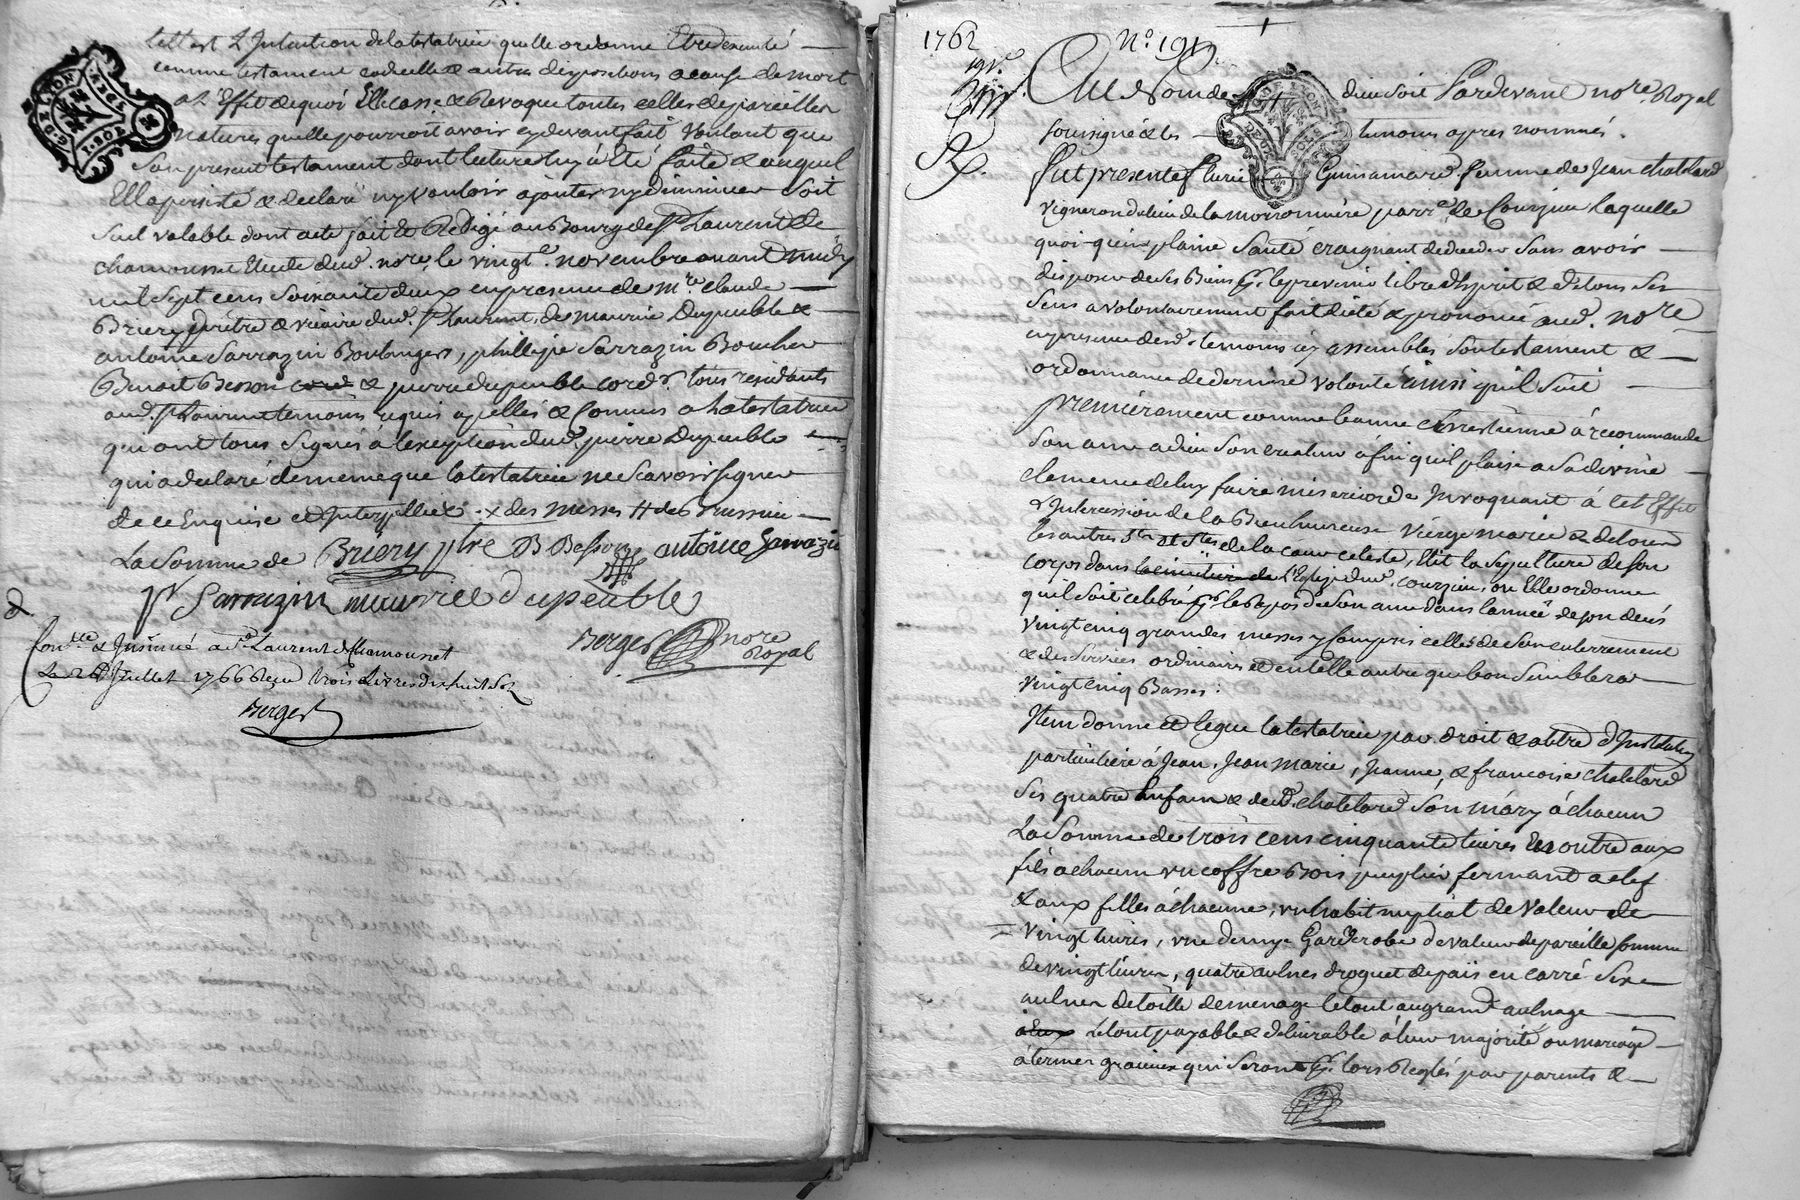 tell est L'Intention de la testatrice quelle ordonne Etre executé
comme testament codicelle & autres dispositions a cause de mort
a L'Effet de quoi Elle casse & Revoque toutes celles de pareilles
natures quelle pourroit avoir cy devant fait, voulant que
son present testament dont lecture luy à eté faite & auquel
Elle a persisté & declaré ny vouloir ajouter ny diminuer soit
seul valable dont acte fait & Redigé au Bourg de St Laurent de
chamousset Etude dud. nore, le vingte. novembre avant midy
mil sept cens soixante deux en presence de mre claude
Briery prêtre & vicaire dud. St Laurent, de maurice Dupeuble &
antoine Sarrazin Boulangers, phillippe Sarrazin Boucher
Benoit Besson & pierre dupeuble cordr. tous residants
aud. St Laurent temoins requis apellés & Connus a la testatrice
qui ont tous signés à l'exception dud. pierre Dupeuble
qui a declaré de meme que la testatrice ne scavoir signer
de ce Enquise et Interpellée .x des messes # des
La Somme de Briery ptre B Besson antoine Sarrazin
pr Sarrazin maurice dupeuble
Berger nore Royal
Conlle & Insinué a St Laurent de Chamousset
Le 26 Juillet 1766 Reçu trois Livres dix huit Sols
Berger
1762 No 191
191e.
Au Nom de dieu soit Pardevant nore. Royal
soussigné & les temoins apres nommés.
fut presente fleurie Guinamard femme de Jean chatelard
vigneron du lieu de la morronniere parre. de Courzieu laquelle
quoi quen plaine Santé craignant deceder Sans avoir
disposer de ses Biens Et. les previnir libre d'Esprit & de tous ses
sens a volontairement fait dicté & prononcé aud. nore
en presence desd. temoins icy assemblés son testament &
ordonnance de derniere volonté ainsi quil Suit
premierement comme bonne chrestienne à recommandé
son ame a dieu Son createur afin quil plaise a Sa divine
clemence de luy faire misericorde Invoquant à cet Effet
L'Intercession de la Bienheureuse Vierge marie & de tous
les autres Sts et Stes de la cour celeste, Elit la sepulture de son
corps dans la cimetiere de l'Eglise dud. courzieu, ou Elle ordonne
quil soit celebré pr le Repos de Son ame dans l'année de son decés
vingt cinq grandes messes y Compris celles de son enterrement
& des services ordinaires et en telle autre que bon Semblera
vingt cinq Basses:
Item donne et legue la testatrice par droit & attre d'Institution
particuliere à Jean, Jean marie, Jeanne, & francoise chatelard
ses quatre Enfans & dud. chatelard Són máry à chacun
La Somme de trois cens cinquante livres Et outre aux
fils a chacun un coffre Bois peuplier fermant a clef
& aux filles à chacune, un habit nuptial de valeur de
vingt livres, une demye Garderobe de valeur de pareille somme
de vingt livres, quatre aulnes droguet de païs en carré Six
aulnes de toille de menage le tout au grand aulnage
Le tout payable & delivrable à leur majorité ou mariage
a termes gracieux qui seront pr. lors Reglés par parents &